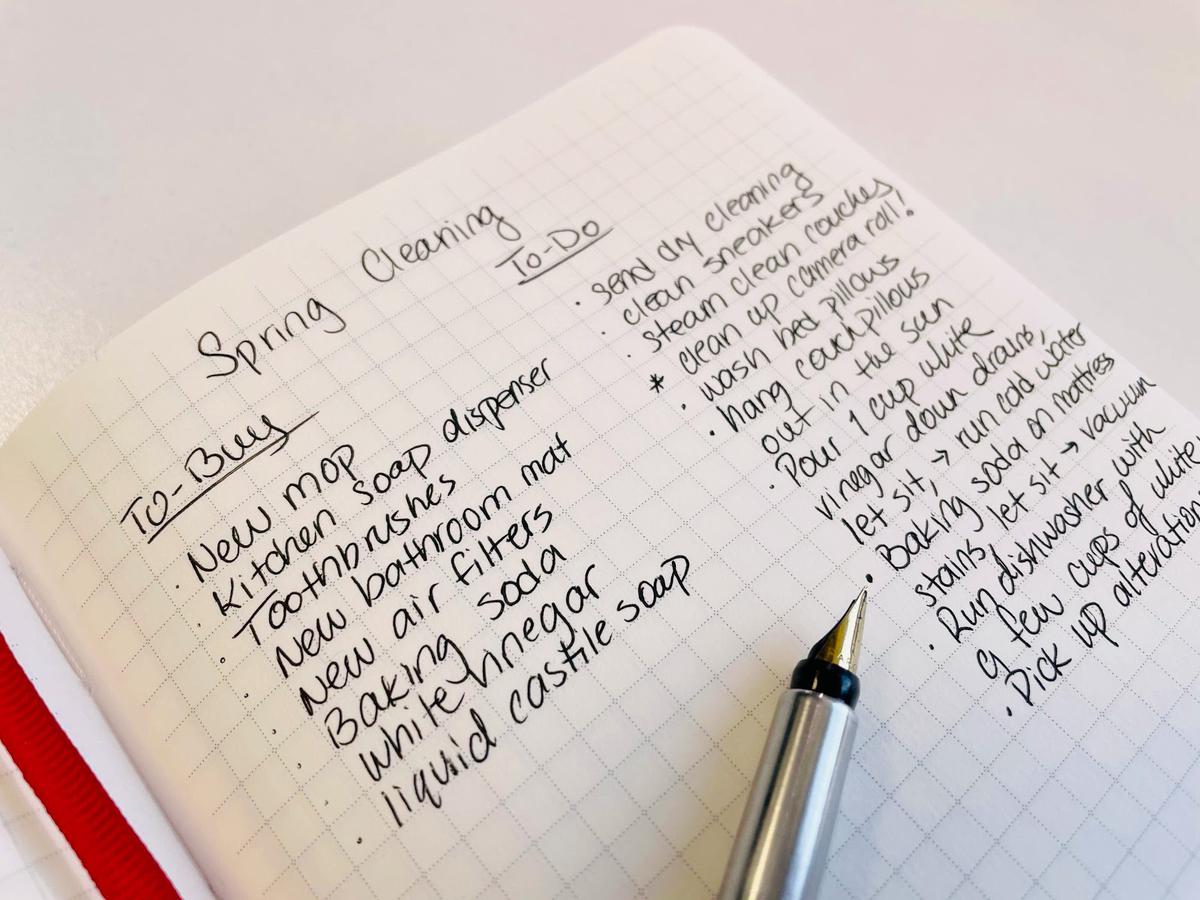 Spring Cleaning
To-Buy
· New mop
Kitchen soap dispenser
· Toothbrushes
· New bathroom mat
· New air filters
· Baking soda
· white vinegar
· liquid castile soap
To-Do
· send dry cleaning
· clean sneakers
· steam clean couches
* clean up camera roll!
· wash bed pillows
· hang couch pillows
out in the sun
· Pour 1 cup white
vinegar down drains,
let sit, → run cold water
· Baking soda on mattress
stains let sit → vacuum
· Run dishwasher with
a few cups of white
· Pick up alteration